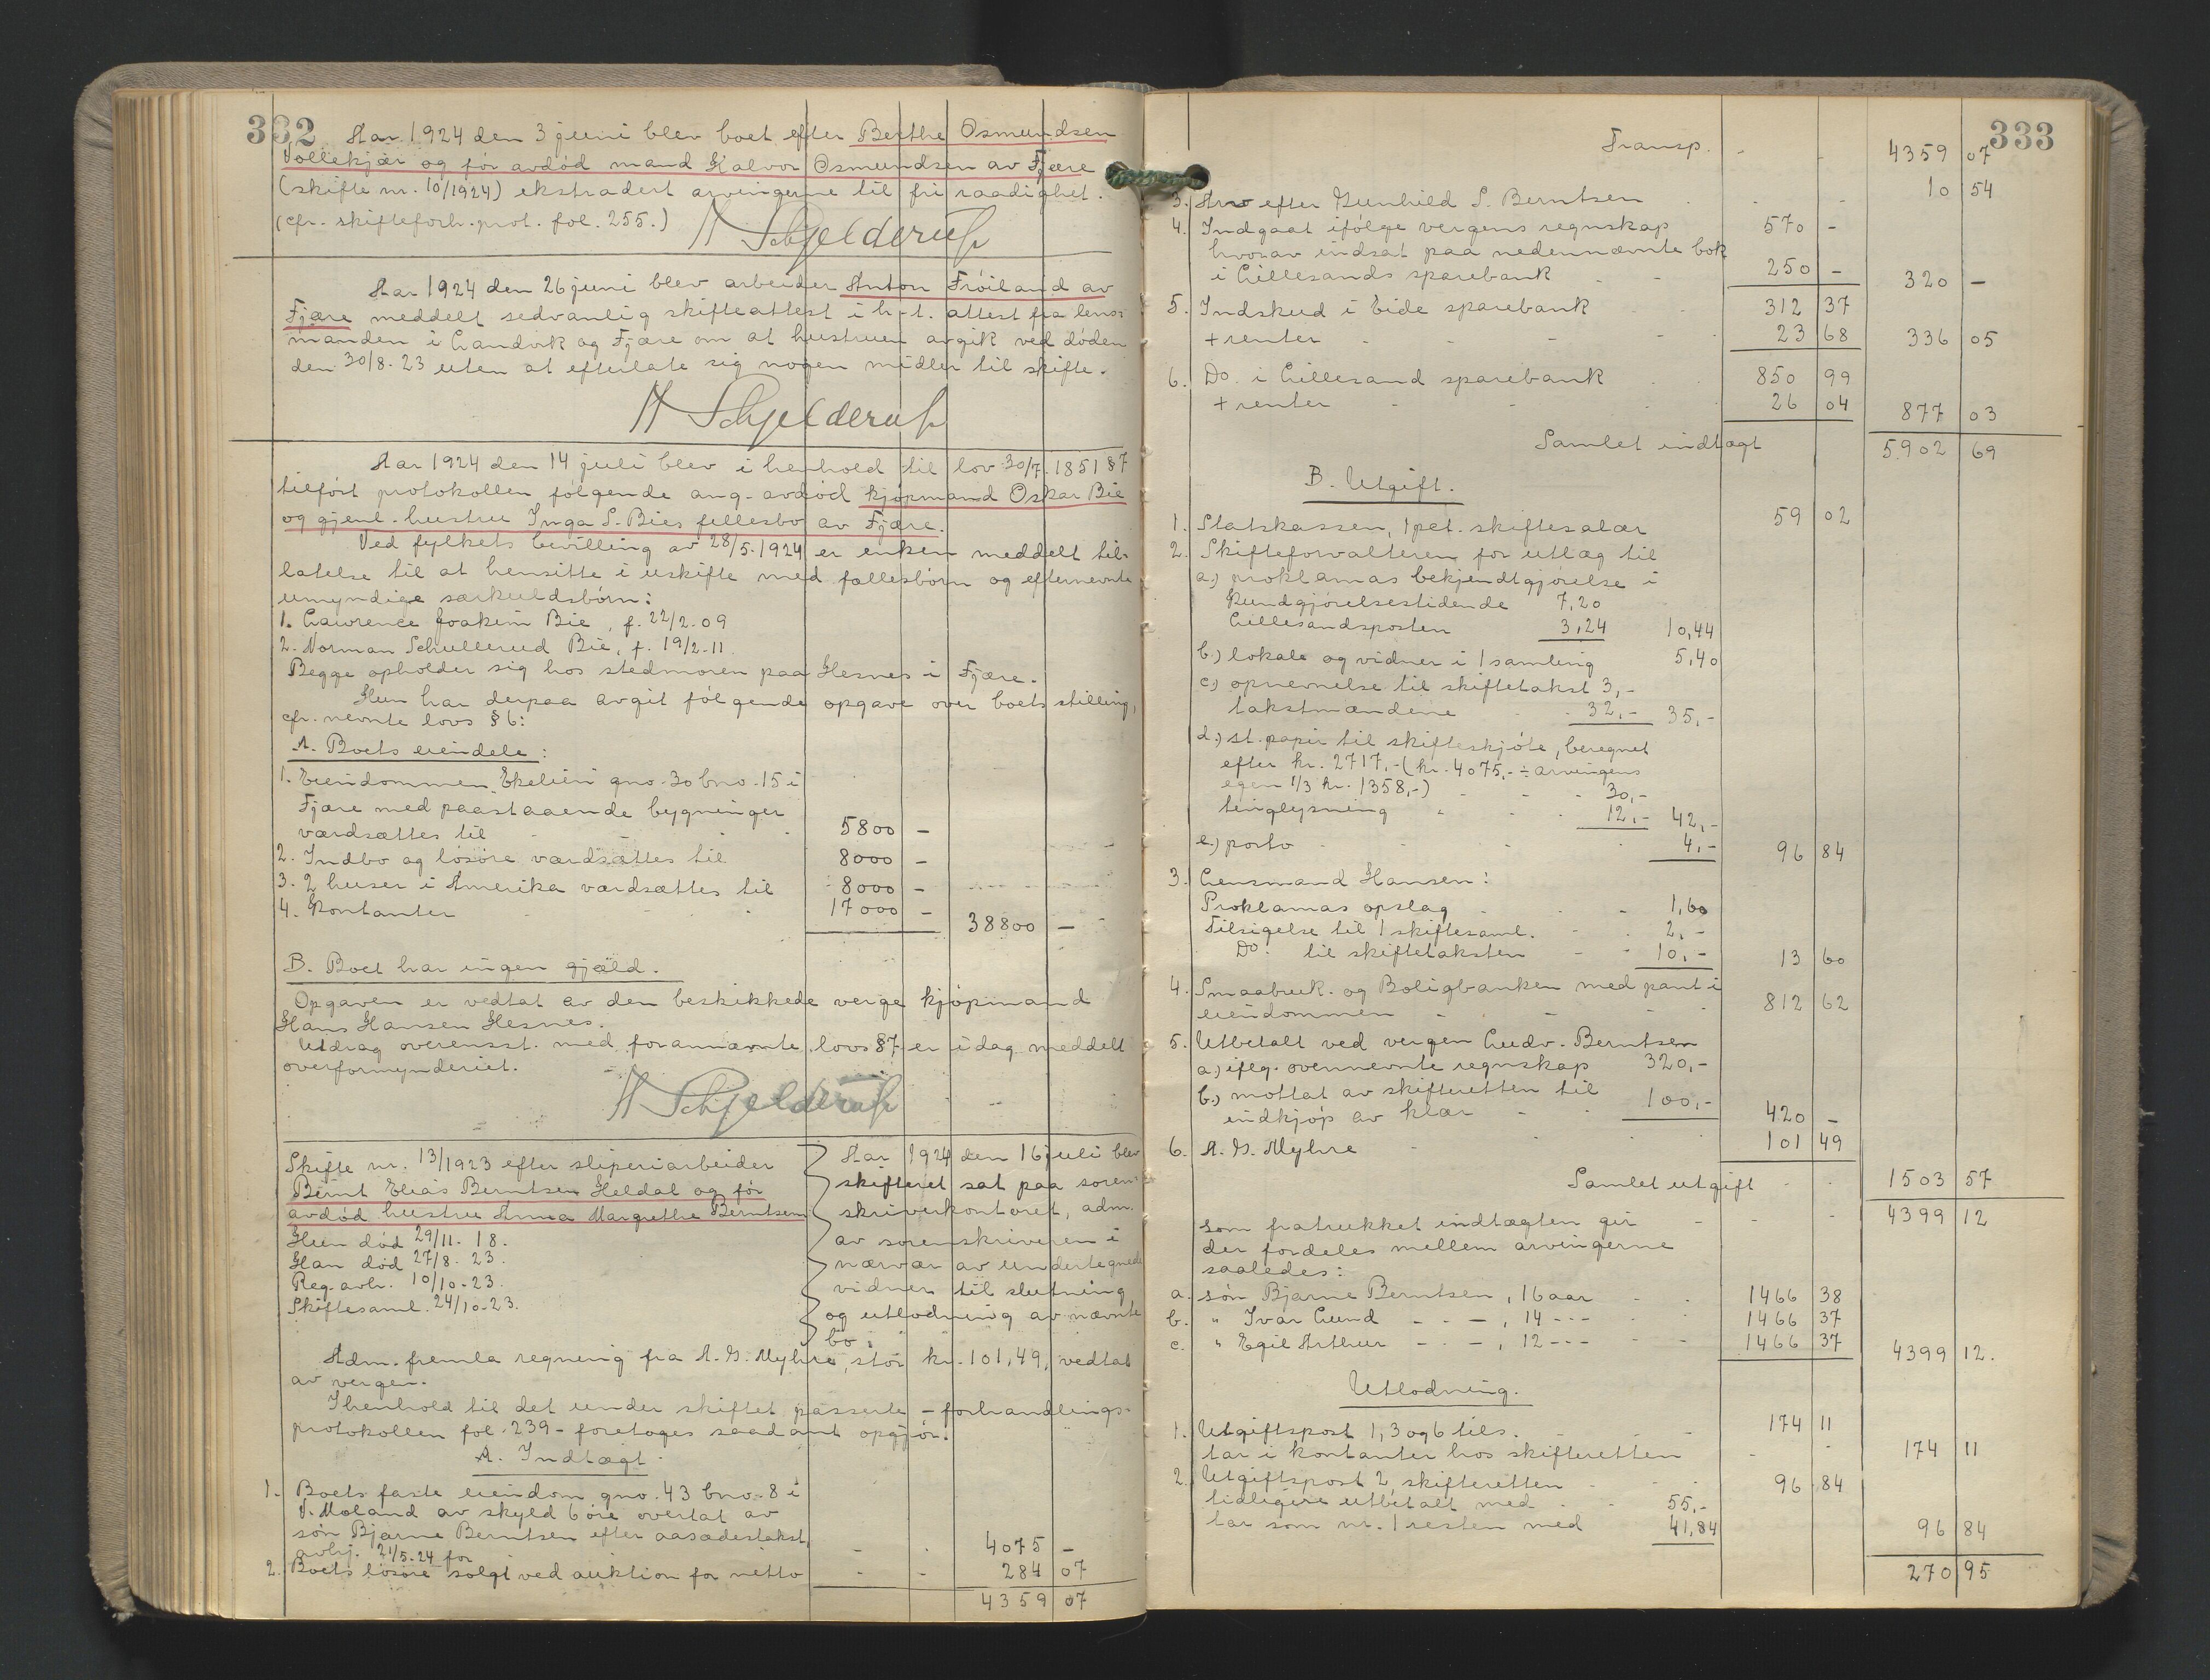 332
Aar 1924 den 3 juni blev boet efter Berthe Osmundsen
Vollekjær og før avdød mand Halvor Osmundsen av Fjære
(skifte nr. 10/1924) ekstradert arvingerne til fri raadighet.
(cfr. skifteforh. prot. fol. 255.)
H Schjelderup
Aar 1924 den 26 juni blev arbeider Anton Frøiland av
Fjære meddelt sedvanlig skifteattest i h-t. attest fra lens-
manden i Landvik og Fjære om at hustruen avgik ved døden
den 30/8. 23 uten at efterlate sig nogen midler til skifte.
H Schjelderup
Aar 1924 den 14 juli blev i henhold til lov 30/7. 1851 §7
tilført protokollen følgende ang. avdød kjøpmand Oskar Bie
og gjenl. hustru Inga S. Bies fellesbo av Fjære.
Ved fylkets bevilling av 28/5. 1924 er enken meddelt til-
latelse til at hensitte i uskifte med fællesbørn og efternevnte
umyndige særkuldsbørn:
1. Lawrence Joakim Bie, f. 22/2. 09
2. Norman Schullerud Bie, f. 19/2. 11
Begge opholder sig hos stedmoren paa Hesnes i Fjære.
Hun har derpaa avgit følgende opgave over boets stilling,
cfr. nevnte lovs § 6:
A. Boets eiendele:
1. Eiendommen Ekelien gno. 30 bno. 15 i
Fjære med paastaaende bygninger
værdsættes til - - - 5800 -
2. Indbo og løsøre værdsættes til 8000 -
3. 2 huser i Amerika værdsættes til 8000 -
4. Kontanter - - - 17000 - 38800 -
B. Boet har ingen gjæld.
Opgaven er vedtat av den beskikkede verge kjøpmand
Hans Hansen Hesnes.
Utdrag overensst. med forannævnte lovs §7 er idag meddelt
overformynderiet.
H Schjelderup
Skifte nr. 13/1923 efter sliperiarbeider
Bernt Elias Berntsen Heldal og før
avdød hustru Anna Margrethe Berntsen
Hun død 29/11. 18.
Han død 27/8. 23.
Reg. avh. 10/10. 23.
Skiftesaml. 24/10. 23.
Aar 1924 den 16 juli blev
skifteret sat paa soren-
skriverkontoret, adm.
av sorenskriveren i
nærvær av undertegnede
vidner til slutning
og utlodning av nævnte
bo:
Adm. fremla regning fra A. G. Myhre, stor kr. 101,49, vedtat
av vergen.
I henhold til det under skiftet passerte - forhandlings-
protokollen fol. 239 - foretoges saadant opgjør:
A. Indtægt.
1. Boets faste eiendom gno. 43 bno. 8 i
V. Moland av skyld 6 øre overtat av
søn Bjarne Berntsen efter aasædestakst,
avhj. 21/5. 24 for - - 4075 -
2. Boets løsøre solgt ved auktion for netto - - 284 07
4359 07
333
Transp. - - 4359 07
3. Arv efter Gunhild S. Berntsen - - 10 54
4. Indgaat ifølge vergens regnskap 570 -
hvorav indsat paa nedennævnte bok
i Lillesands sparebank - 250 - 320 -
5. Indskud i Eide sparebank 312 37
+ renter - - - 23 68 336 05
6. Do. i Lillesand sparebank 850 99
+ renter - - - 26 04 877 03
Samlet indtægt 5902 69
B. Utgift.
1. Statskassen, 1 pct. skiftesalær 59 02
2. Skifteforvalteren for utlæg til
a.) proklamas bekjendtgjørelse i
Kundgjørelsestidende 7,20
Lillesandsposten 3,24 10,44
b.) lokale og vidner i 1 samling 5,40
c.) opnevnelse til skiftetakst 3,-
takstmændene - - 32,- 35,-
d.) st. papir til skifteskjøte, beregnet
efter kr. 2717,- (kr. 4075,- ÷ arvingens
egen 1/3 kr. 1358,-) - - - 30,-
tinglysning - - - 12,- 42,-
e.) porto - - - 4,- 96 84
3. Lensmand Hansen:
Proklamas opslag - - 1,60
Tilsigelse til 1 skiftesaml. - - 2,-
Do. til skiftetaksten - - 10,- 13 60
4. Smaabruk. og Boligbanken med pant i
eiendommen - - - 812 62
5. Utbetalt ved vergen Ludv. Berntsen
a.) iflg. ovennevnte regnskap 320,-
b.) mottat av skifteretten til
indkjøp av klær - - 100,- 420 -
6. A. G. Myhre - - - 101 49
Samlet utgift - - 1503 57
som fratrukket indtægten gir - - - 4399 12
der fordeles mellem arvingerne
saaledes:
a. søn Bjarne Berntsen, 16 aar - - 1466 38
b. " Ivar Lund - - -, 14 - - - 1466 37
c. " Egil Arthur - - -, 12 - - - 1466 37 4399 12.
Utlodning.
1. Utgiftspost 1, 3 og 6 tils. - - 174 11
tar i kontanter hos skifteretten - - 174 11
2. Utgiftspost 2, skifteretten - - 96 84
tidligere utbetalt med - - 55,-
tar som nr. 1 resten med 41,84 96 84
270 95